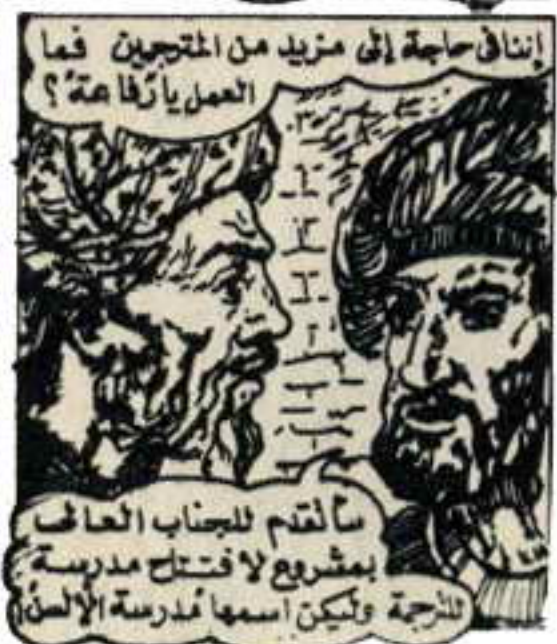 إننا في حاجة إلى مزيد من المترجمين فما
العمل يا رفاعة؟
سأتقدم للجناب العالى
بمشروع لافتتاح مدرسة
للترجمة وليكن اسمها مدرسة الألسن